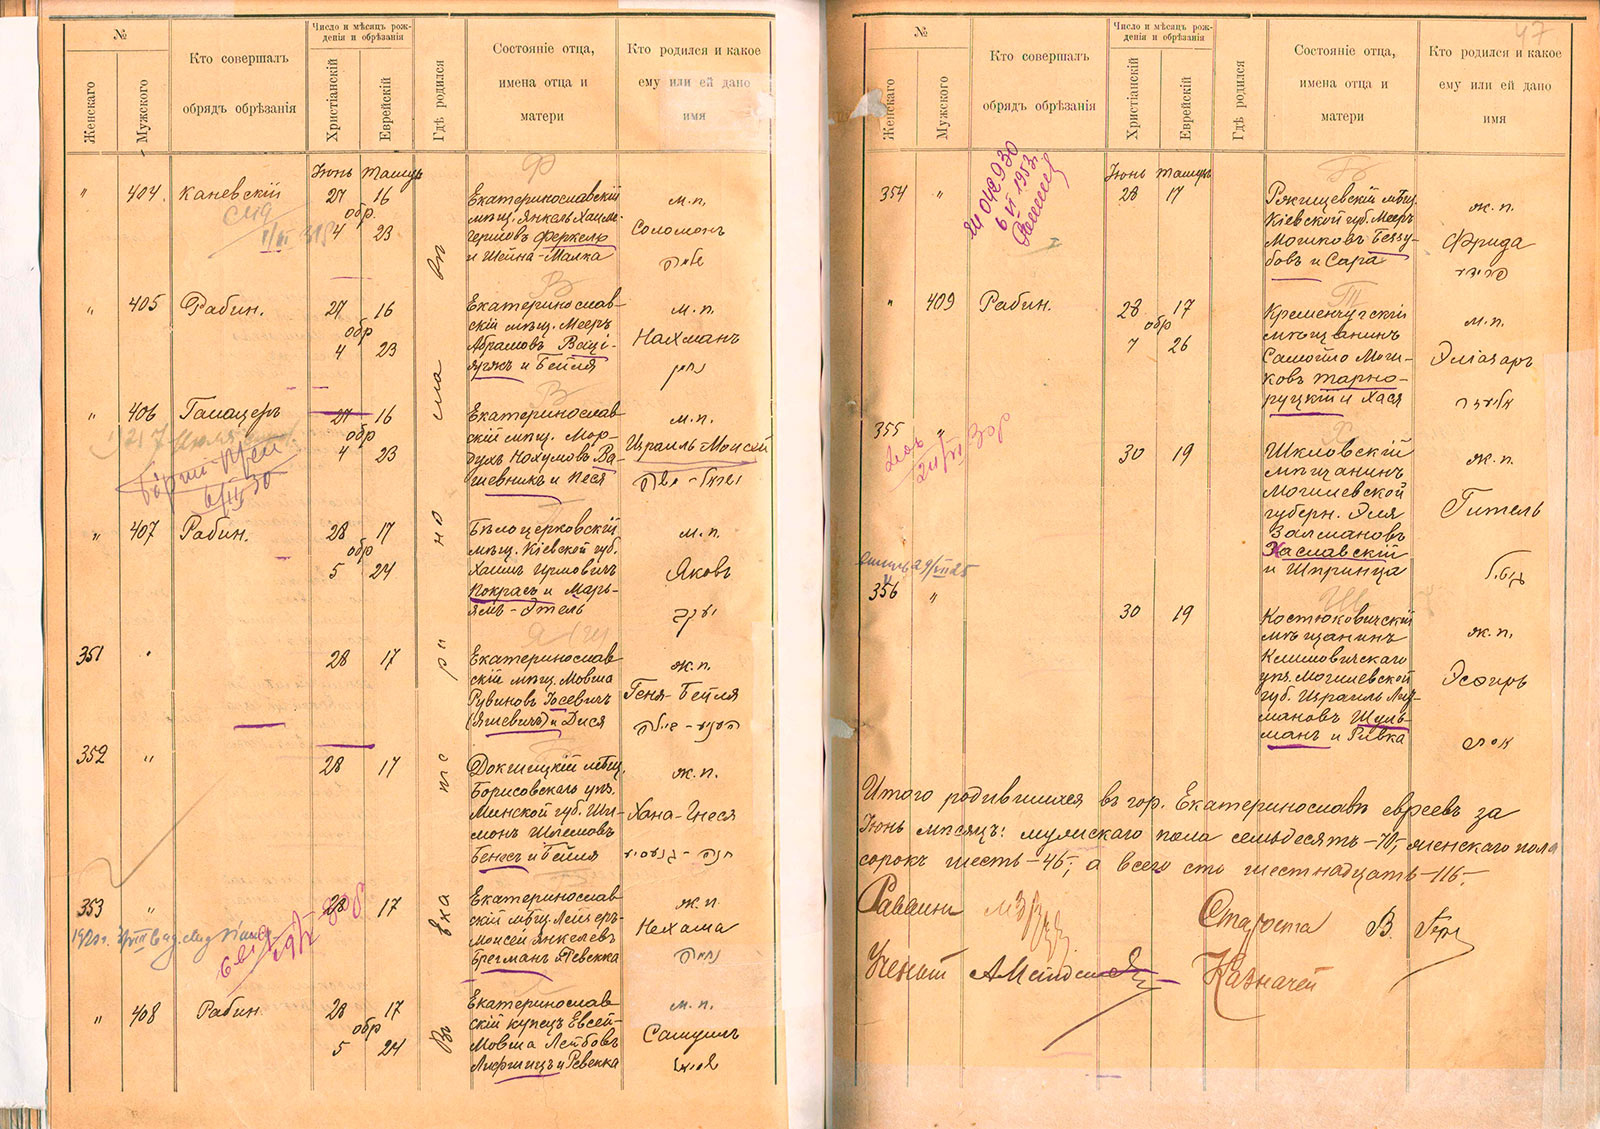 №
Женскаго
Мужского
Кто совершалъ
обрядъ обрѣзанія
Число и мѣсяцъ рож-
денія и обрѣзанія
Христіанскій
Еврейскій
Гдѣ родился
Состояніе отца,
имена отца и
матери
Кто родился и какое
ему или ей дано
имя
Іюнь Тамузъ
" 404. Каневскій 27 16
обр.
4 23
Екатеринославскій
мѣщ. Янкель Хаимъ-
Гершовъ Феркель
и Шейна-Малка
м.п.
Соломонъ
שלמה
" 405 Рабин. 27 16
обр
4 23
Екатеринослав-
скій мѣщ. Мееръ
Абрамовъ
и Бейля
м.п.
Нахманъ
נחמן
" 406 27 16
обр
4 23
Екатеринослав-
скій мѣщ. Мор-
духъ Нохумовъ Ва-
шевникъ и Песя
м.п.
Израиль-Моисей
ישראל-משה
6/IX 30
" 407 Рабин. 28 17
обр
5 24
Бѣлоцерковскій
мѣщ. Кіевской губ.
Хаимъ
Покрасъ и Марь-
ямъ-Этель
м.п.
Яковъ
יעקב
351 28 17
Екатеринослав
скій мѣщ. Мовша
Рувиновъ Іосевичъ
(Яшевичъ) и Дися
ж.п.
Геня-Бейля
העניע-ביילה
352 " 28 17
Докшицкій мѣщ.
Борисовскаго уѣз.
Минской губ. Ши-
монъ
Бенесъ и Бейля
ж.п.
Хана-Гнеся
חנה-גנעסיע
353 " 28 17
Екатеринослав
скій мѣщ. Лейзеръ-
Моисей Янкелевъ
Брегманъ Ревекка
ж.п.
Нехама
נחמה
" 408 Рабин. 28 17
обр
5 24
Екатеринослав
скій купецъ Евсей-
Мовша Лейбовъ
Лифшицъ и Ревекка
м.п.
Самуилъ
שמואל
Въ Екатеринославѣ
47
№
Женскаго
Мужского
Кто совершалъ
обрядъ обрѣзанія
Число и мѣсяцъ рож-
денія и обрѣзанія
Христіанскій
Еврейскій
Гдѣ родился
Состояніе отца,
имена отца и
матери
Кто родился и какое
ему или ей дано
имя
Іюнь Тамузъ
354 " 28 17
042930
6 VI 1953г.
Ржищевскій мѣщ.
Кіевской губ. Мееръ
Мошковъ Беззу-
бовъ и Сара
ж.п.
Фрида
פרידי
" 409 Рабин. 28 17
обр
7 26
Кременчугскій
мѣщанинъ
Самойло Мош-
ковъ Тарно-
руцкій и Хася
м.п.
Эліазаръ
אליעזר
355 " 30 19
Шкловскій
мѣщанинъ
Могилевской
губерн. Эля
Залмановъ
Хаславскій
и Шпринца
ж.п.
Гитель
גיטל
356 " 30 19
Костюковичскій
мѣщанинъ
Климовичскаго
уѣз. Могилевской
губ. Израиль Лей-
мановъ Шуль-
манъ и Ривка
ж.п.
Эсфирь
אסתר
Итого родившихся въ гор. Екатеринославѣ евреевъ за
Іюнь мѣсяцъ: мужскаго пола семьдесятъ-70, женскаго пола
сорокъ шесть-46, а всего сто шестнадцать-116.
Раввинъ Староста В.
Ученый Казначей